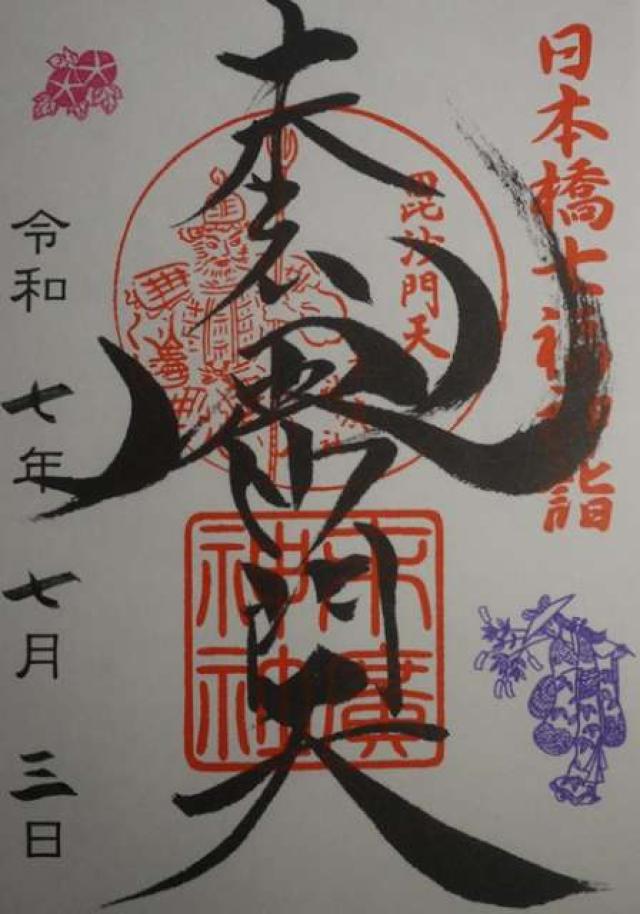 日本橋七福神詣
毘沙門天
毘沙門天
末廣
神社
令和 七年 七月 三日